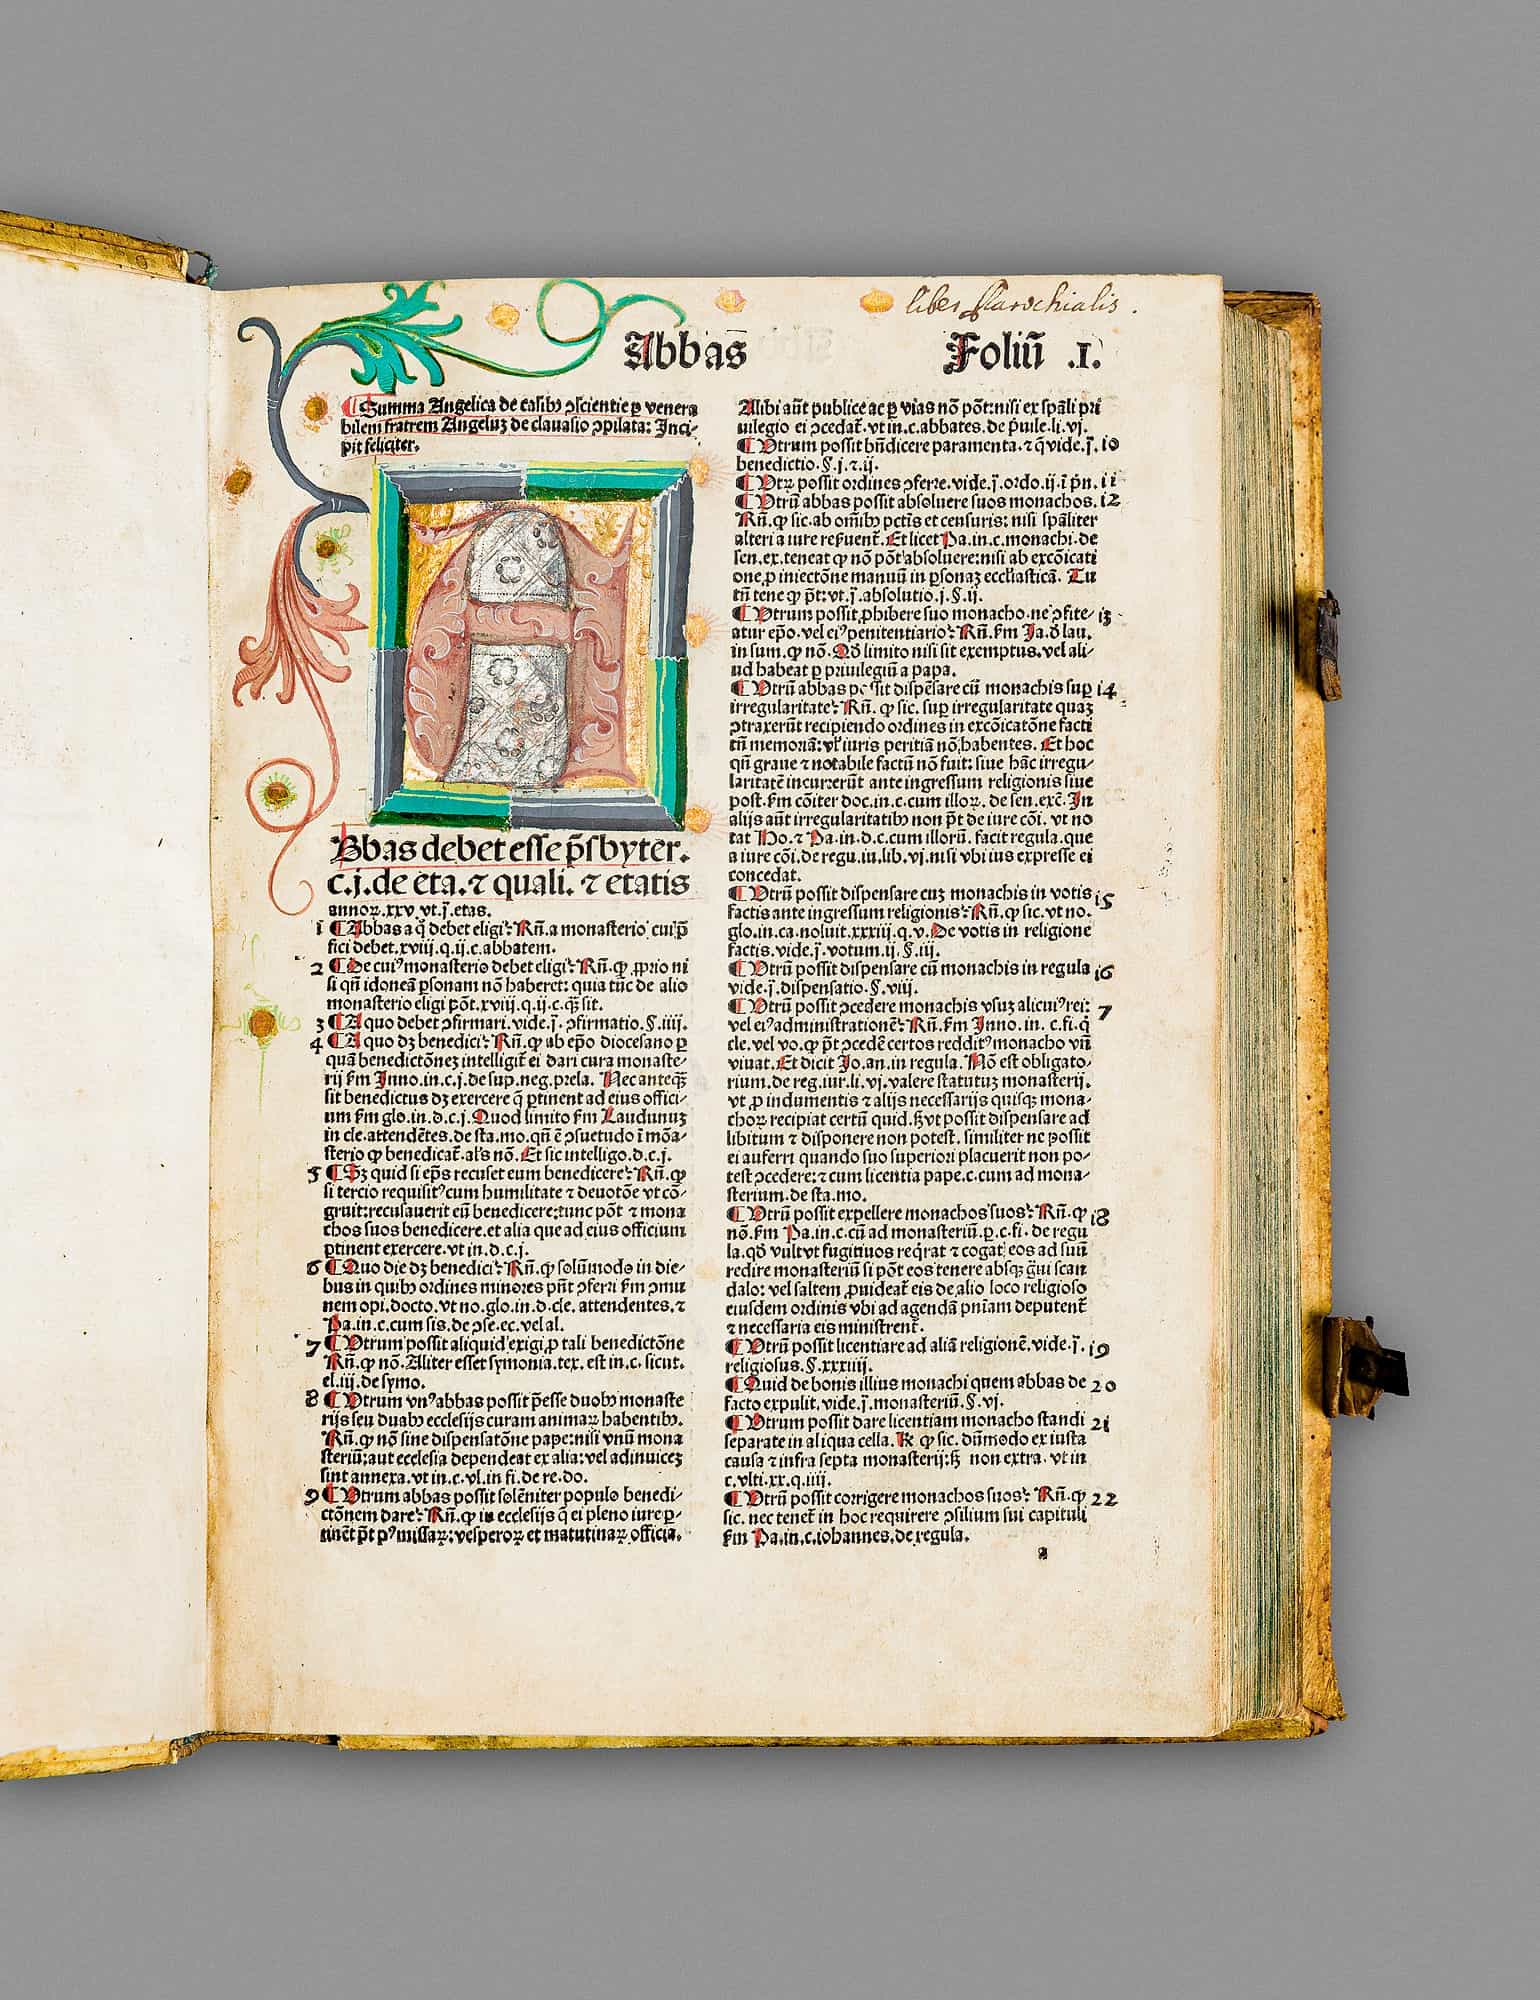 liber parochialis.
Abbas
Foliū .I.
¶ Summa Angelica de casibꝰ ↄscientie ꝑ venera
bilem fratrem Angeluꝫ de clauasio ↄpilata: Inci-
pit feliciter.
A
Bbas debet esse p̄sbyter.
c.j.de eta.⁊ quali. ⁊ etatis
annoꝝ.xxv.vt.j̄.etas.
1 ¶ Abbas a q̊ debet eligi? Rn̄.a monasterio cui p̄
fici debet.xviij.q.ij.c.abbatem.
2 ¶ De cuiꝰ monasterio debet eligi? Rn̄.ꝙ ꝓprio ni
si qn̄ idoneā ꝑsonam nō haberet: quia tūc de alio
monasterio eligi pōt.xviij.q.ij.c.q̄ sit.
3 ¶ A quo debet ↄfirmari.vide.j̄. ↄfirmatio.§.iiij.
4 ¶ A quo dꝫ benedici? Rn̄.ꝙ ab ep̄o diocesano ꝑ
quā benedictōneꝫ intelligit̄ ei dari cura monaste-
rij ẜm Inno.in.c.j.de sup.neg.prela. Nec anteqꝫ
sit benedictus dꝫ exercere q̄ ꝑtinent ad eius offici-
um ẜm glo.in.d.c.j. Quod limito ẜm Laudunuꝫ
in cle.attendētes.de sta.mo.qn̄ ē ↄsuetudo ī mōa-
sterio ꝙ benedicat̄.al̓s nō. Et sic intelligo.d.c.j.
5 ¶ Sꝫ quid si ep̄s recuset eum benedicere? Rn̄.ꝙ
si tercio requisitꝰ cum humilitate ⁊ deuotōe vt cō-
gruit:recusauerit eū benedicere:tunc pōt ⁊ mona
chos suos benedicere.et alia que ad eius officium
ꝑtinent exercere.vt in.d.c.j.
6 ¶ Quo die dꝫ benedici? Rn̄.ꝙ solūmodo in die-
bus in quibꝰ ordines minores pn̄t ↄferri ẜm ↄmu
nem opi.docto.vt no.glo.in.d.cle. attendentes.⁊
Pa.in.c.cum sis.de ↄse.ec.vel al.
7 ¶ Vtrum possit aliquid exigi ꝓ tali benedictōne
Rn̄.ꝙ nō. Aliter esset symonia.tex. est in.c. sicut.
el.iij.de symo.
8 ¶ Vtrum vnꝰ abbas possit p̄esse duobꝰ monaste
rijs seu duabꝰ ecclesijs curam animaꝝ habentibꝰ.
Rn̄.ꝙ nō sine dispensatōne pape:nisi vnū mona
steriū:aut ecclesia dependeat ex alia:vel adinuiceꝫ
sint annexa.vt in.c.vl.in fi.de re.do.
9 ¶ Vtrum abbas possit solēniter populo benedi-
ctōnem dare? Rn̄.ꝙ in ecclesijs q̄ ei pleno iure ꝑ-
tinēt p̄t pꝰ missaꝝ:vesperoꝝ et matutinaꝝ officia.
Alibi aūt publice ac ꝑ vias nō pōt:nisi ex sp̄ali pri
uilegio ei ↄcedat̄.vt in.c.abbates.de p̄uile.li.vj.
¶ Vtrum possit bn̄dicere paramenta.⁊ q̄ vide.j̄. 10
benedictio.§.j.⁊.ij.
¶ Vtꝝ possit ordines ↄferre.vide.j̄.ordo.ij.ī pn̄. 11
¶ Vtrū abbas possit absoluere suos monachos. 12
Rn̄.ꝙ sic.ab om̄ibꝰ pctīs et censuris: nisi sp̄aliter
alteri a iure reẜuent̄. Et licet Pa.in.c.monachi.de
sen.ex.teneat ꝙ nō pōt absoluere:nisi ab excōicati
one ꝓ iniectōne manuū in ꝑsonaꝫ ecclīasticā. Tu
tn̄ tene ꝙ p̄t: vt.j̄.absolutio.j.§.ij.
¶ Vtrum possit ꝓhibere suo monacho.ne ↄfite- 13
atur ep̄o.vel eiꝰ penitentiario? Rn̄.ẜm Ja.d̄ lau.
in sum.ꝙ nō. Qd̄ limito nisi sit exemptus.vel ali-
ud habeat ꝑ priuilegiū a papa.
¶ Vtrū abbas possit dispēsare cū monachis suꝑ 14
irregularitate? Rn̄. ꝙ sic. suꝑ irregularitate quaꝫ
ↄtraxerūt recipiendo ordines in excōicatōne facti
tn̄ memoriā: vl̓ iuris peritiā nō habentes. Et hoc
qn̄ graue ⁊ notabile factū nō fuit: siue hāc irregu-
laritatē incurrerūt ante ingressum religionis siue
post.ẜm cōiter doc.in.c.cum illoꝝ. de sen.exc̄. In
alijs aūt irregularitatibꝰ non p̄t de iure cōi. vt no
tat Ho.⁊ Pa.in.d.c.cum illorū. facit regula.que
a iure cōi.de regu.iu.lib.vj.nisi vbi ius expresse ei
concedat.
¶ Vtrū possit dispensare cuꝫ monachis in votis 15
factis ante ingressum religionis? Rn̄.ꝙ sic.vt no.
glo.in.ca.noluit.xxxiij.q.v. De votis in religione
factis.vide.j̄.votum.ij.§.iij.
¶ Vtrū possit dispensare cū monachis in regula 16
vide.j̄.dispensatio.§.viij.
¶ Vtrū possit ↄcedere monachis vsuꝫ alicuiꝰ rei: 7
vel eiꝰ administrationē? Rn̄.ẜm Inno. in. c.fi.q̄
cle.vel vo.ꝙ p̄t ↄcedē certos redditꝰ monacho vn̄
viuat. Et dicit Jo.an.in regula. Nō est obligato-
rium.de reg.iur.li.vj.valere statutuꝫ monasterij.
vt ꝓ indumentis ⁊ alijs necessarijs quisqꝫ mona-
choꝝ recipiat certū quid.ẜ vt possit dispensare ad
libitum ⁊ disponere non potest. similiter ne possit
ei auferri quando suo superiori placuerit non po-
test ↄcedere:⁊ cum licentia pape.c.cum ad mona-
sterium.de sta.mo.
¶ Vtrū possit expellere monachos suos? Rn̄.ꝙ 18
nō.ẜm Pa.in.c.cū ad monasteriū.ꝑ.c.fi. de regu
la.qd̄ vult vt fugitiuos reqrat ⁊ cogat eos ad suū
redire monasteriū si pōt eos tenere absqꝫ g̊ui scan
dalo: vel saltem ꝓuideat̄ eis de alio loco religioso
eiusdem ordinis vbi ad agendā pn̄iam deputent̄
⁊ necessaria eis ministrent̄.
¶ Vtrū possit licentiare ad aliā religionē.vide.j̄. 19
religiosus.§.xxxiiij.
¶ Quid de bonis illius monachi quem abbas de 20
facto expulit.vide.j̄.monasteriū.§.vj.
¶ Vtrum possit dare licentiam monacho standi 21
separate in aliqua cella. R̄ ꝙ sic. dūmodo ex iusta
causa ⁊ infra septa monasterij:ẜ non extra. vt in
c.vlti.xx.q.iiij.
¶ Vtrū possit corrigere monachos suos? Rn̄.ꝙ 22
sic. nec tenet̄ in hoc requirere ↄsilium sui capituli
ẜm Pa.in.c.iohannes.de regula.
a